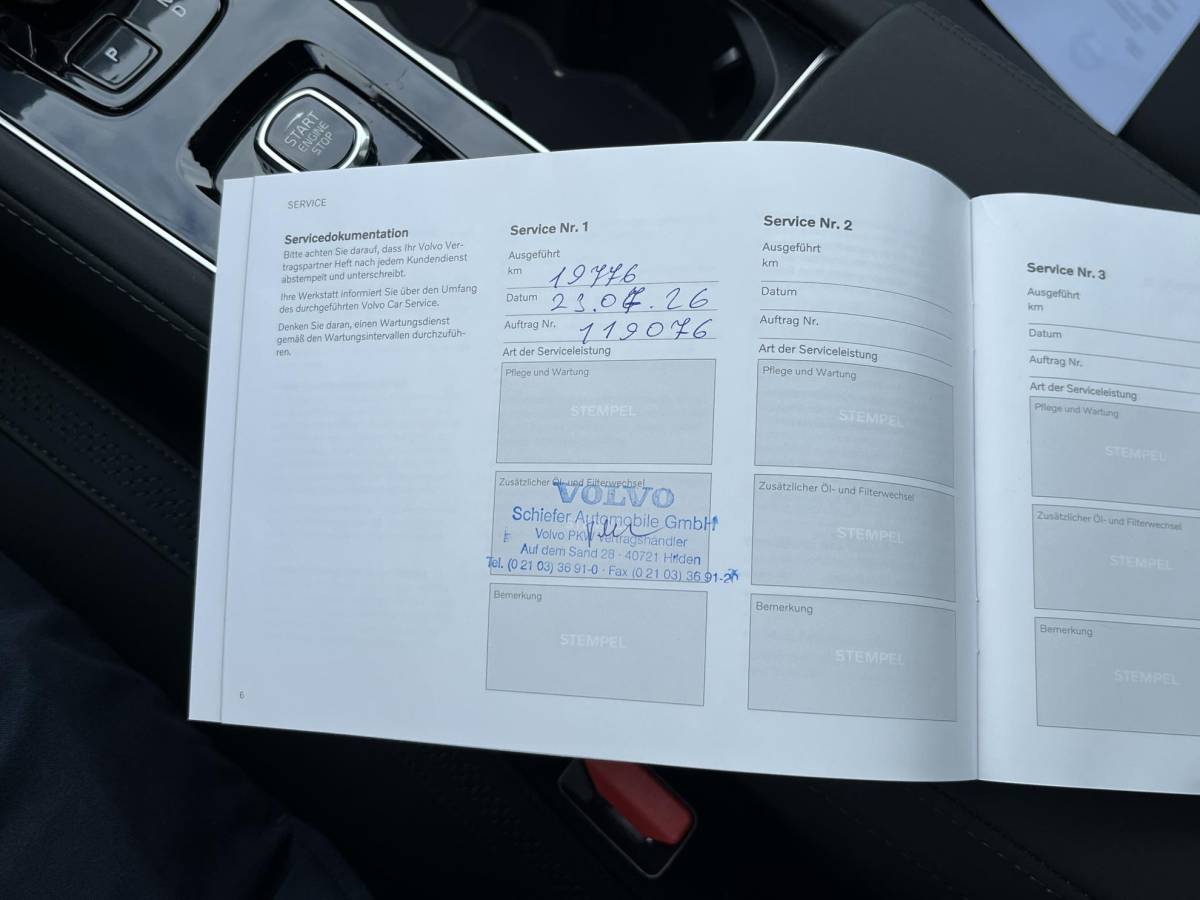 P
D
START
ENGINE
STOP
SERVICE
Servicedokumentation
Bitte achten Sie darauf, dass Ihr Volvo Ver-
tragspartner Heft nach jedem Kundendienst
abstempelt und unterschreibt.
Ihre Werkstatt informiert Sie über den Umfang
des durchgeführten Volvo Car Service.
Denken Sie daran, einen Wartungsdienst
gemäß den Wartungsintervallen durchzufüh-
ren.
6
Service Nr. 1
Ausgeführt
km 19776
Datum 23.07.26
Auftrag Nr. 119076
Art der Serviceleistung
Pflege und Wartung
STEMPEL
Zusätzlicher Öl- und Filterwechsel
VOLVO
Schiefer Automobile GmbH
Volvo PKW Vertragshändler
Auf dem Sand 28 · 40721 Hilden
Tel. (0 21 03) 36 91-0 · Fax (0 21 03) 36 91-2
Bemerkung
STEMPEL
Service Nr. 2
Ausgeführt
km
Datum
Auftrag Nr.
Art der Serviceleistung
Pflege und Wartung
STEMPEL
Zusätzlicher Öl- und Filterwechsel
STEMPEL
Bemerkung
STEMPEL
Service Nr. 3
Ausgeführt
km
Datum
Auftrag Nr.
Art der Serviceleistung
Pflege und Wartung
STEMPEL
Zusätzlicher Öl- und Filterwechsel
STEMPEL
Bemerkung
STEMPEL